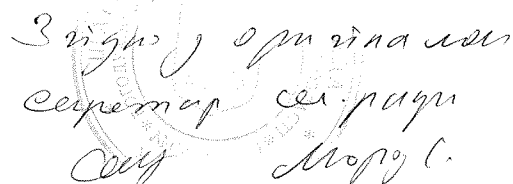 Згідно з оригіналом
секретар сел. ради
Мороз С.